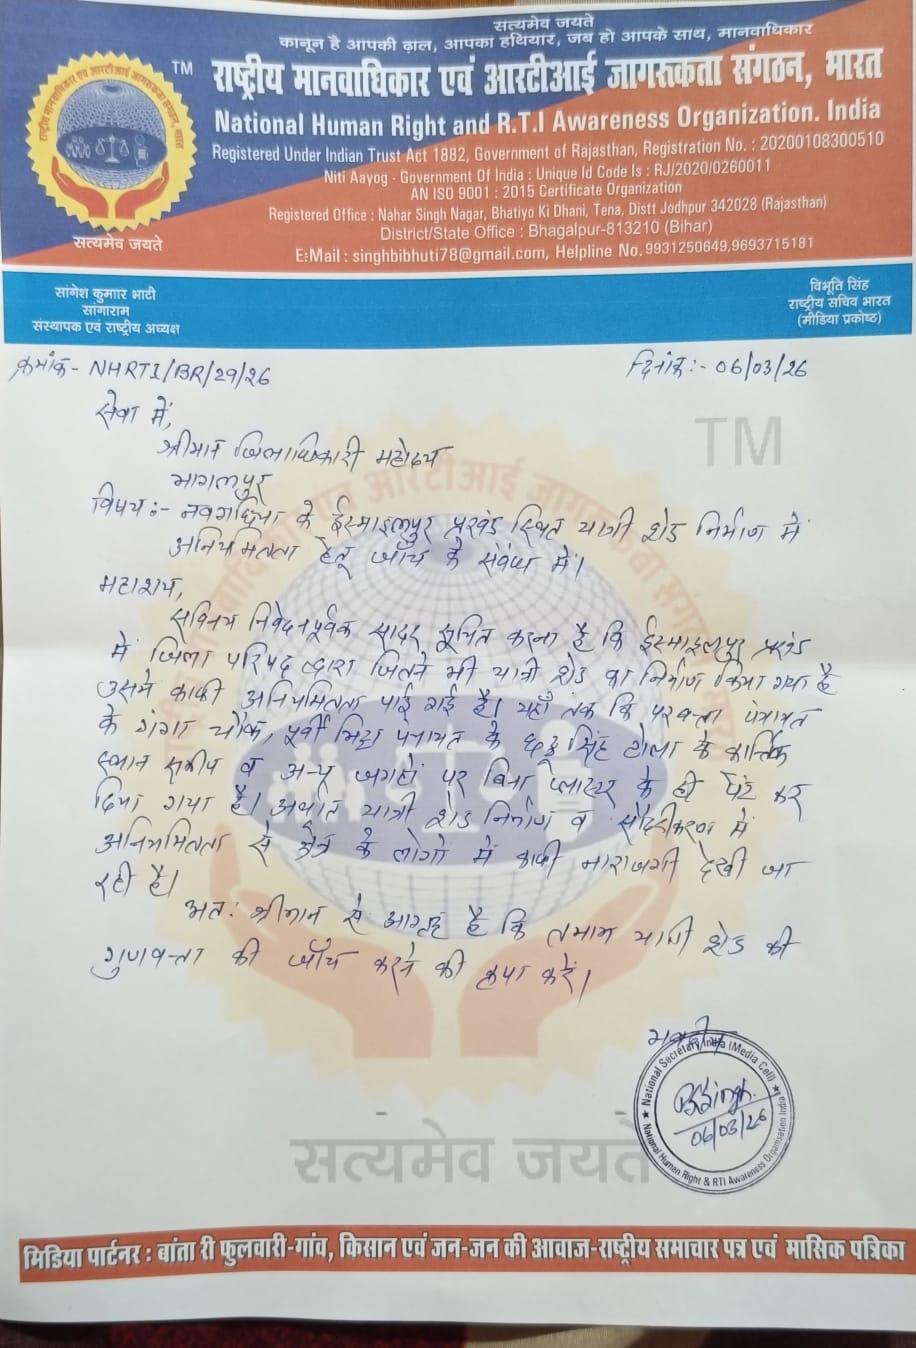 सत्यमेव जयते
कानून है आपकी ढ़ाल, आपका हथियार, जब हो आपके साथ, मानवाधिकार
राष्ट्रीय मानवाधिकार एवं आरटीआई जागरूकता संगठन, भारत
TM
National Human Right and R.T.I Awareness Organization. India
Registered Under Indian Trust Act 1882, Government of Rajasthan, Registration No. : 20200108300510
Niti Aayog - Government Of India : Unique Id Code Is : RJ/2020/0260011
AN ISO 9001 : 2015 Certificate Organization
Registered Office : Nahar Singh Nagar, Bhatiyo Ki Dhani, Tena, Distt Jodhpur 342028 (Rajasthan)
District/State Office : Bhagalpur-813210 (Bihar)
E:Mail : singhbibhuti78@gmail.com, Helpline No. 9931250649,9693715181
सत्यमेव जयते
सांगेश कुमाार भाटी
सांगाराम
संस्थापक एवं राष्ट्रीय अध्यक्ष
विभूति सिंह
राष्ट्रीय सचिव भारत
(मीडिया प्रकोष्ठ)
क्रमांक- NHRTI/BR/29/26
दिनांक:- 06/03/26
सेवा में,
श्रीमान जिलाधिकारी महोदय
भागलपुर
विषय:- नवगछिया के ईस्माइलपुर प्रखंड स्थित यात्री शेड निर्माण में
अनियमितता हेतू जाँच के संबंध में।
महाशय,
सविनय निवेदनपूर्वक सादर सूचित करना है कि ईस्माइलपुर प्रखंड
में जिला परिषद द्वारा जितने भी यात्री शेड का निर्माण किया गया है
उसमें काफी अनियमितता पाई गई है। यहाँ तक कि परवत्ता पंचायत
के गंगा चौक, पूर्वी भिट्ठा पंचायत के छट्टू सिंह टोला के कार्तिक
स्थान समीप व अन्य जगहों पर बिना प्लास्टर के ही पेंट कर
दिया गया है। अर्थात यात्री शेड निर्माण व सौंदर्यीकरण में
अनियमितता से क्षेत्र के लोगों में काफी नाराजगी देखी जा
रही है।
अत: श्रीमान से आग्रह है कि तमाम यात्री शेड की
गुणवत्ता की जाँच करने की कृपा करें।
भवदीय
National Secretary India (Media Cell)
National Human Right & RTI Awareness Organisation India
BKSingh
06/03/26
TM
सत्यमेव जयते
मिडिया पार्टनर : बांता री फुलवारी-गांव, किसान एवं जन-जन की आवाज-राष्ट्रीय समाचार पत्र एवं मासिक पत्रिका